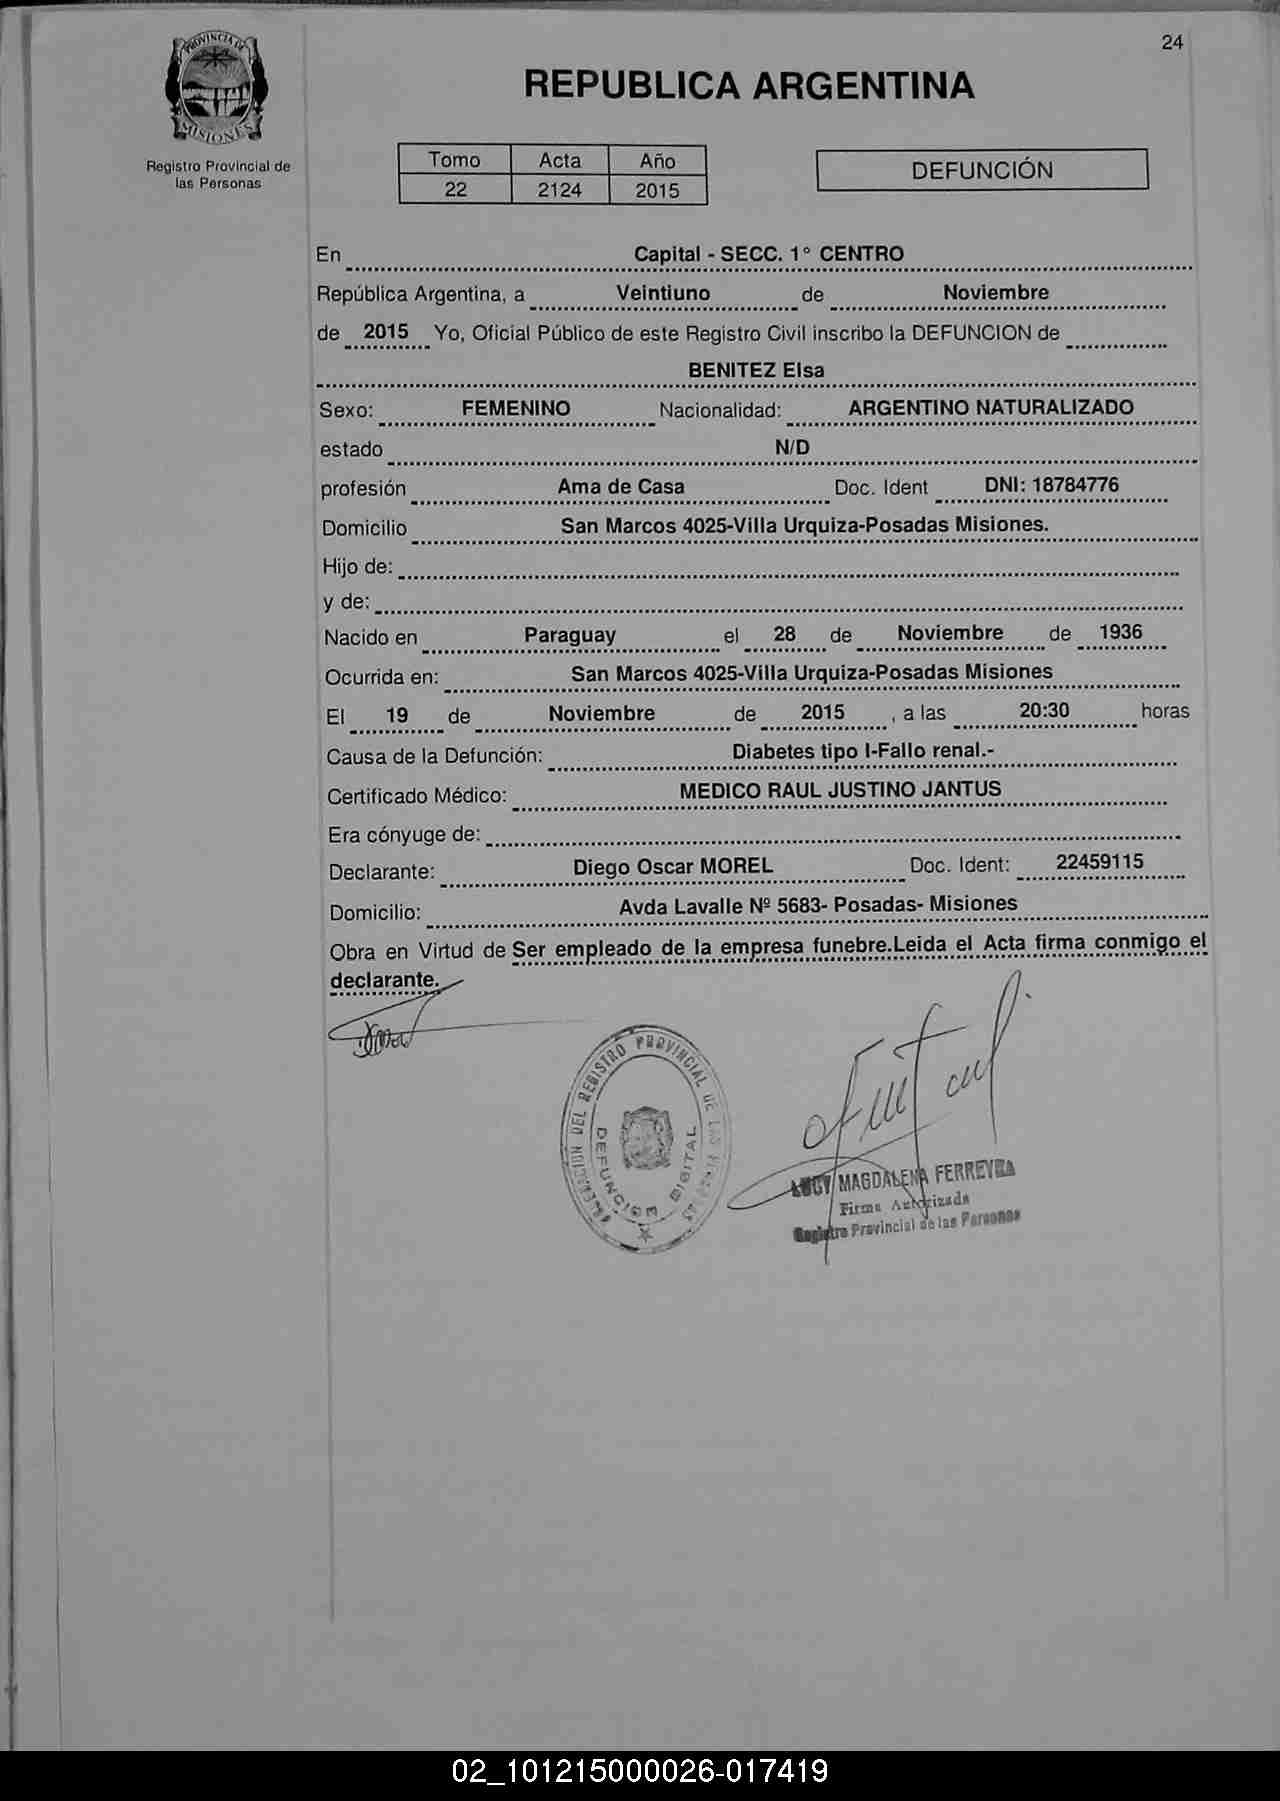 24
PROVINCIA DE
MISIONES
Registro Provincial de
las Personas
REPUBLICA ARGENTINA
Tomo Acta Año
22 2124 2015
DEFUNCIÓN
En Capital - SECC. 1° CENTRO
República Argentina, a Veintiuno de Noviembre
de 2015 Yo, Oficial Público de este Registro Civil inscribo la DEFUNCION de
BENITEZ Elsa
Sexo: FEMENINO Nacionalidad: ARGENTINO NATURALIZADO
estado N/D
profesión Ama de Casa Doc. Ident DNI: 18784776
Domicilio San Marcos 4025-Villa Urquiza-Posadas Misiones.
Hijo de:
y de:
Nacido en Paraguay el 28 de Noviembre de 1936
Ocurrida en: San Marcos 4025-Villa Urquiza-Posadas Misiones
El 19 de Noviembre de 2015 , a las 20:30 horas
Causa de la Defunción: Diabetes tipo I-Fallo renal.-
Certificado Médico: MEDICO RAUL JUSTINO JANTUS
Era cónyuge de:
Declarante: Diego Oscar MOREL Doc. Ident: 22459115
Domicilio: Avda Lavalle Nº 5683- Posadas- Misiones
Obra en Virtud de Ser empleado de la empresa funebre.Leida el Acta firma conmigo el
declarante.
DEL REGISTRO PROVINCIAL DE LAS
DEFUNCION DIGITAL
LUCY MAGDALENA FERREYRA
Firma Autorizada
Registro Provincial de las Personas
02_101215000026-017419